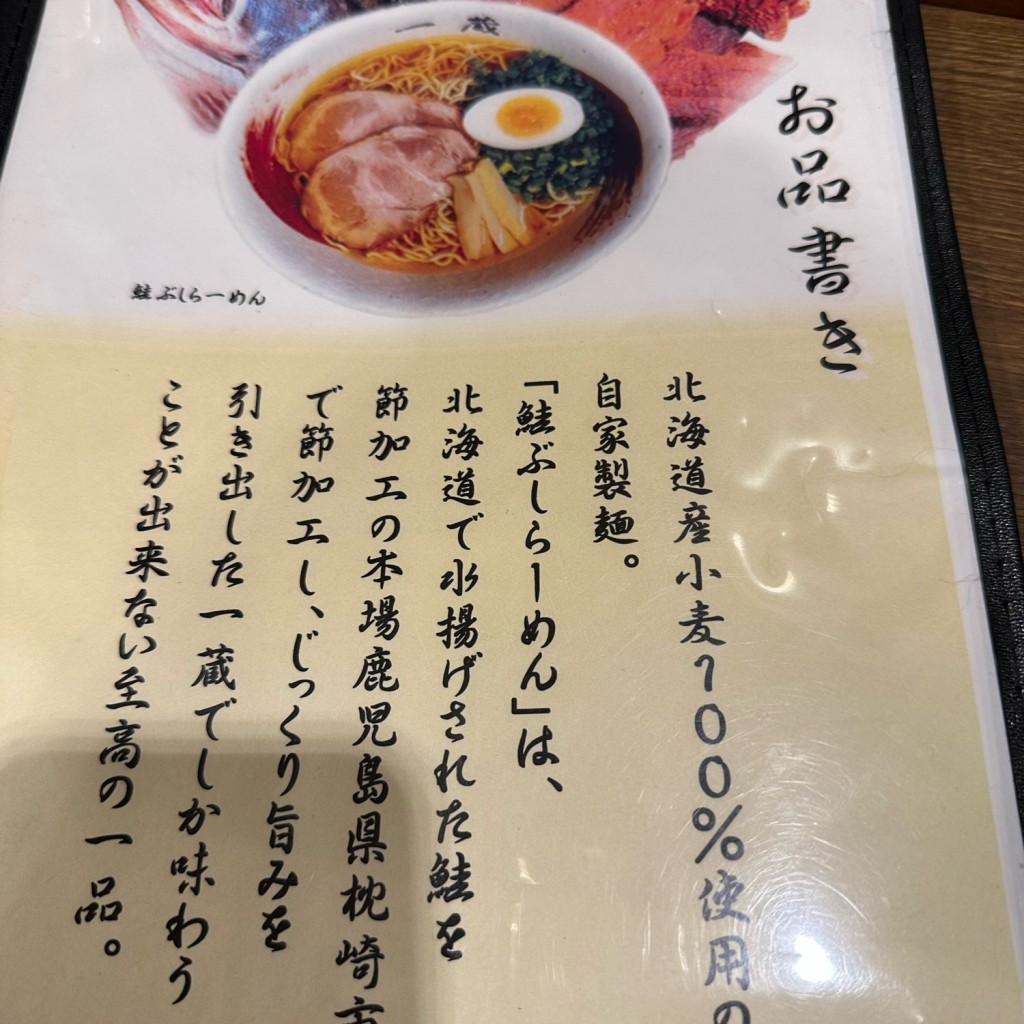 一蔵
お品書き
鮭ぶしらーめん
北海道産小麦100%使用の
自家製麺。
「鮭ぶしらーめん」は、
北海道で水揚げされた鮭を
節加工の本場鹿児島県枕崎市
で節加工し、じっくり旨みを
引き出した一蔵でしか味わう
ことが出来ない至高の一品。